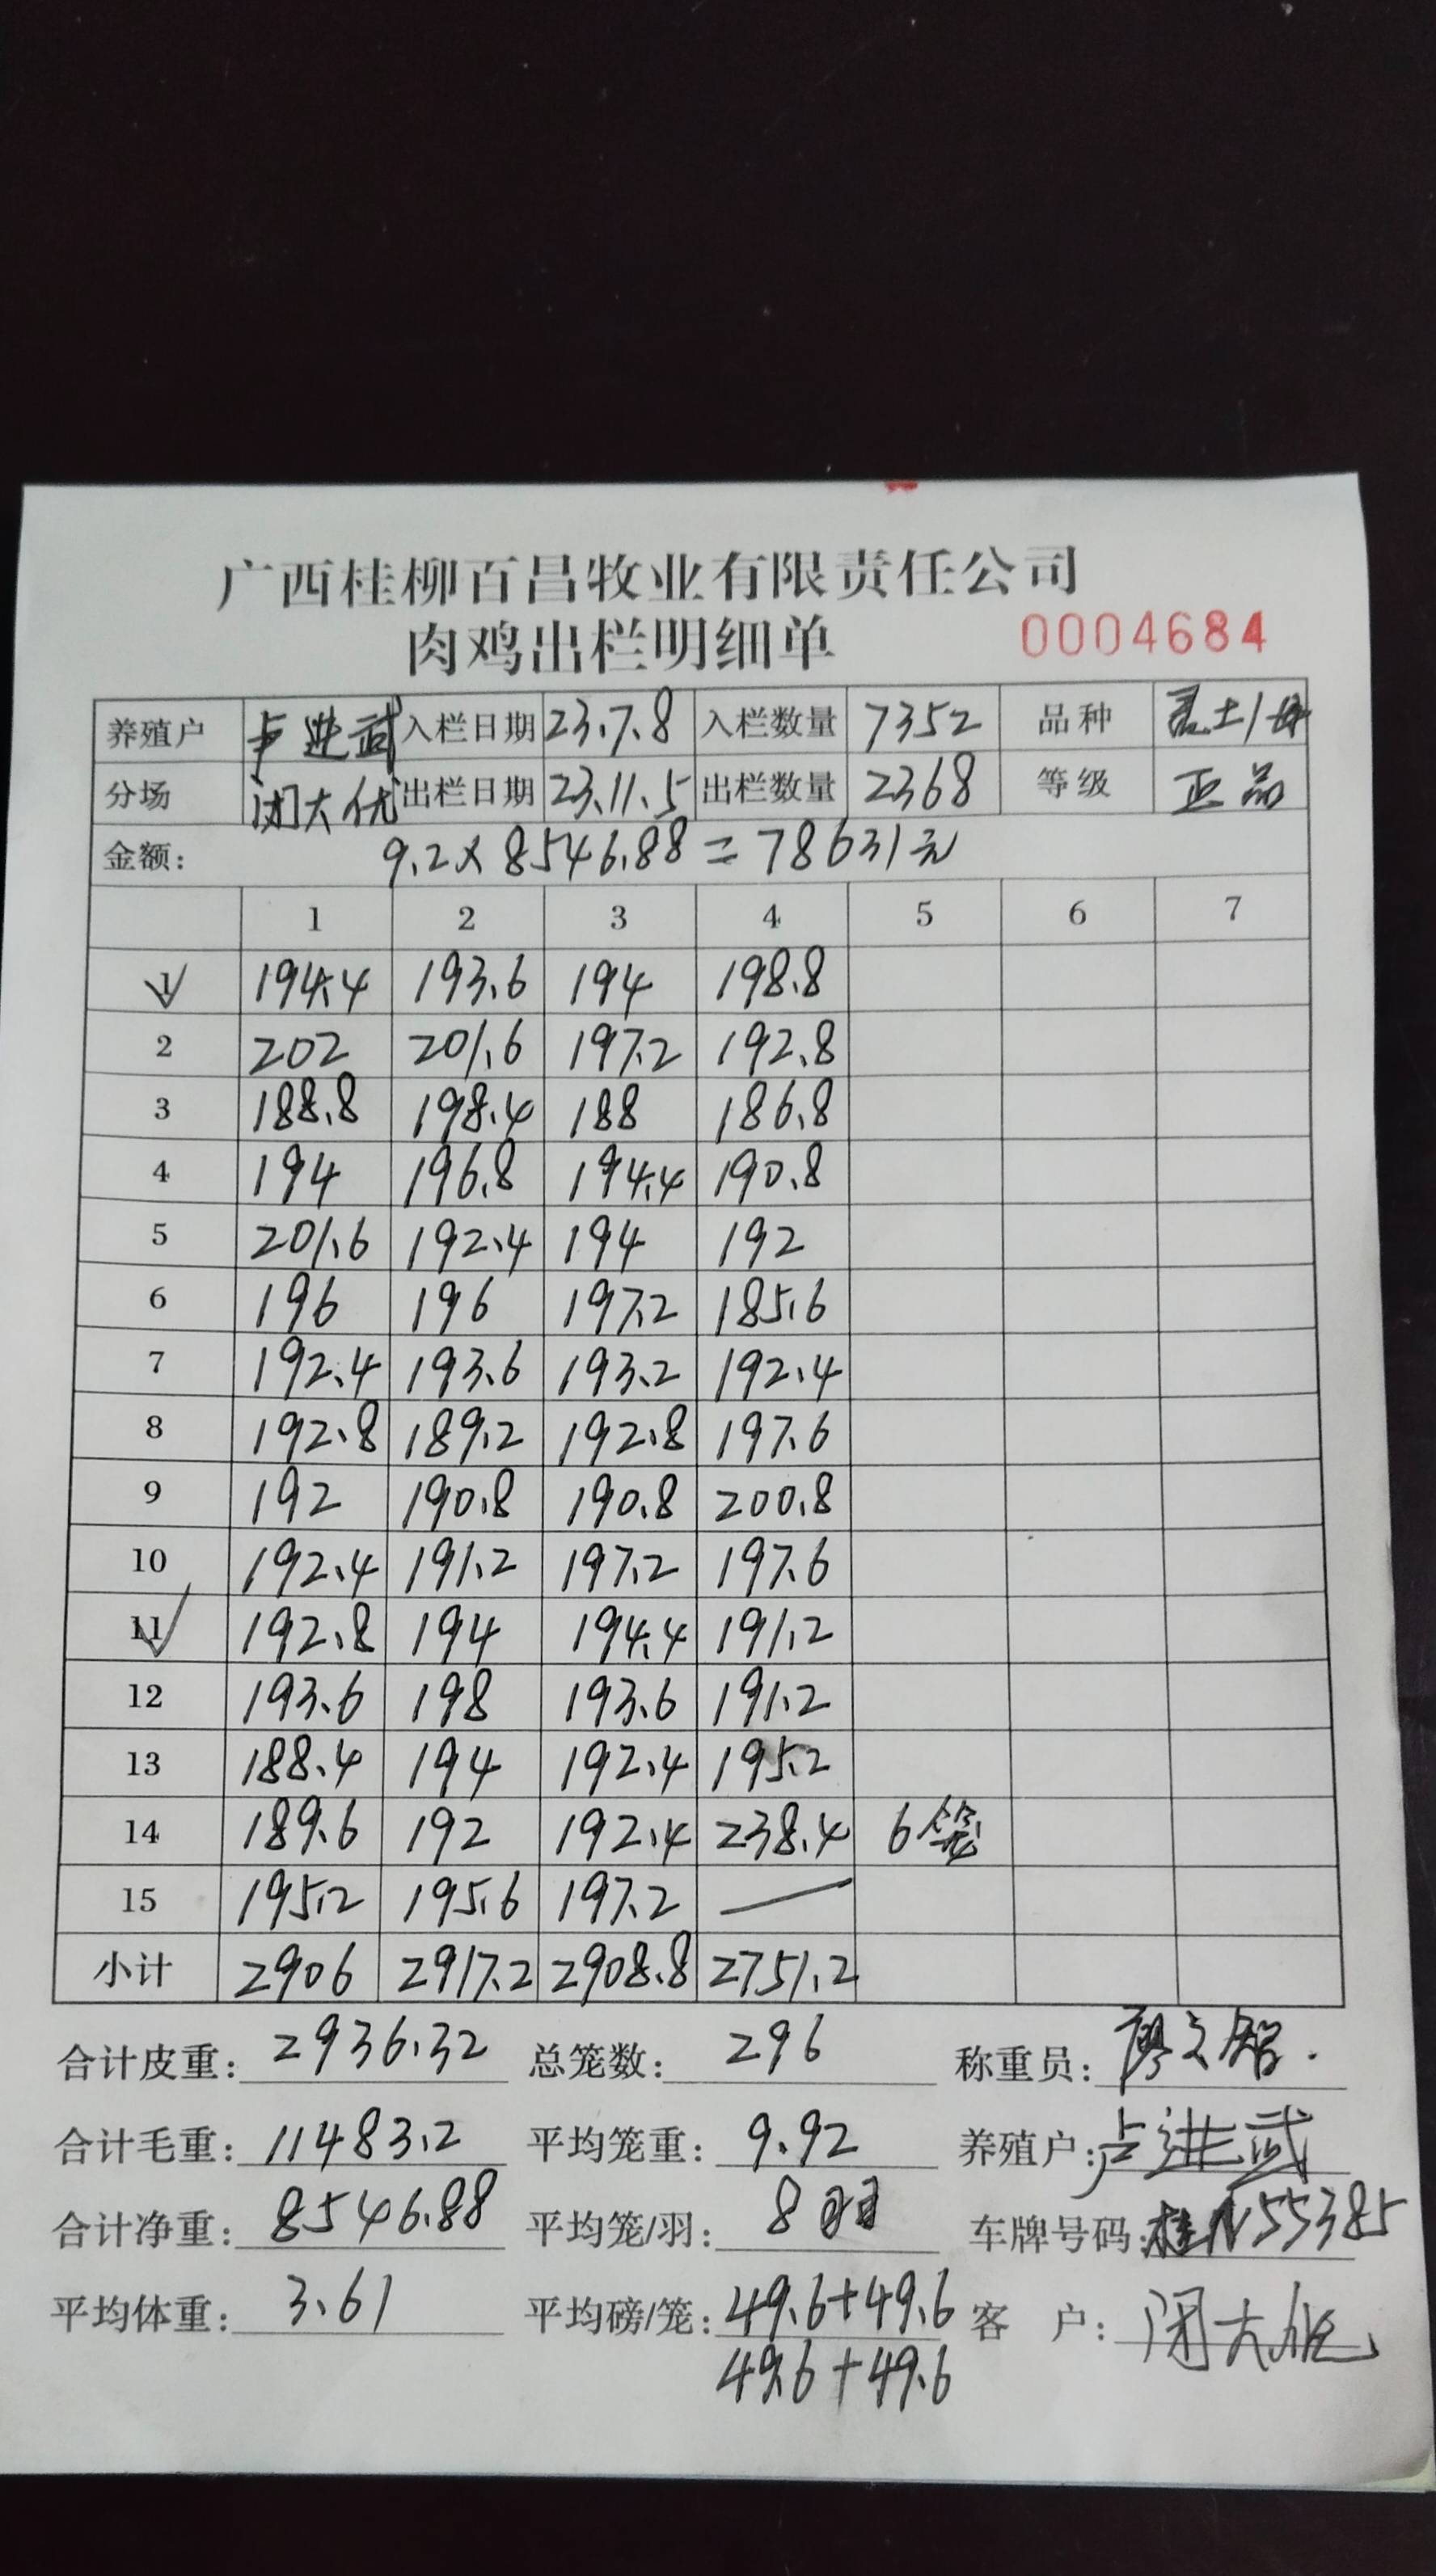 广西桂柳百昌牧业有限责任公司
肉鸡出栏明细单 0004684
养殖户 卢进武 入栏日期 23.7.8 入栏数量 7352 品种 土1母
分场 闭大 出栏日期 23.11.5 出栏数量 2368 等级 正品
金额: 9.2×8546.88=78631元
1 2 3 4 5 6 7
1 194.4 193.6 194 198.8
2 202 201.6 197.2 192.8
3 188.8 198.4 188 186.8
4 194 196.8 194.4 190.8
5 201.6 192.4 194 192
6 196 196 197.2 185.6
7 192.4 193.6 193.2 192.4
8 192.8 189.2 192.8 197.6
9 192 190.8 190.8 200.8
10 192.4 191.2 197.2 197.6
11 192.8 194 194.4 191.2
12 193.6 198 193.6 191.2
13 188.4 194 192.4 195.2
14 189.6 192 192.4 238.4 6笼
15 195.2 195.6 197.2 —
小计 2906 2917.2 2908.8 2751.2
合计皮重: 2936.32 总笼数: 296 称重员: 廖文
合计毛重: 11483.2 平均笼重: 9.92 养殖户: 卢进武
合计净重: 8546.88 平均笼/羽: 8羽 车牌号码: 桂N55385
平均体重: 3.61 平均磅/笼: 49.6+49.6 客户: 闭大
49.6+49.6